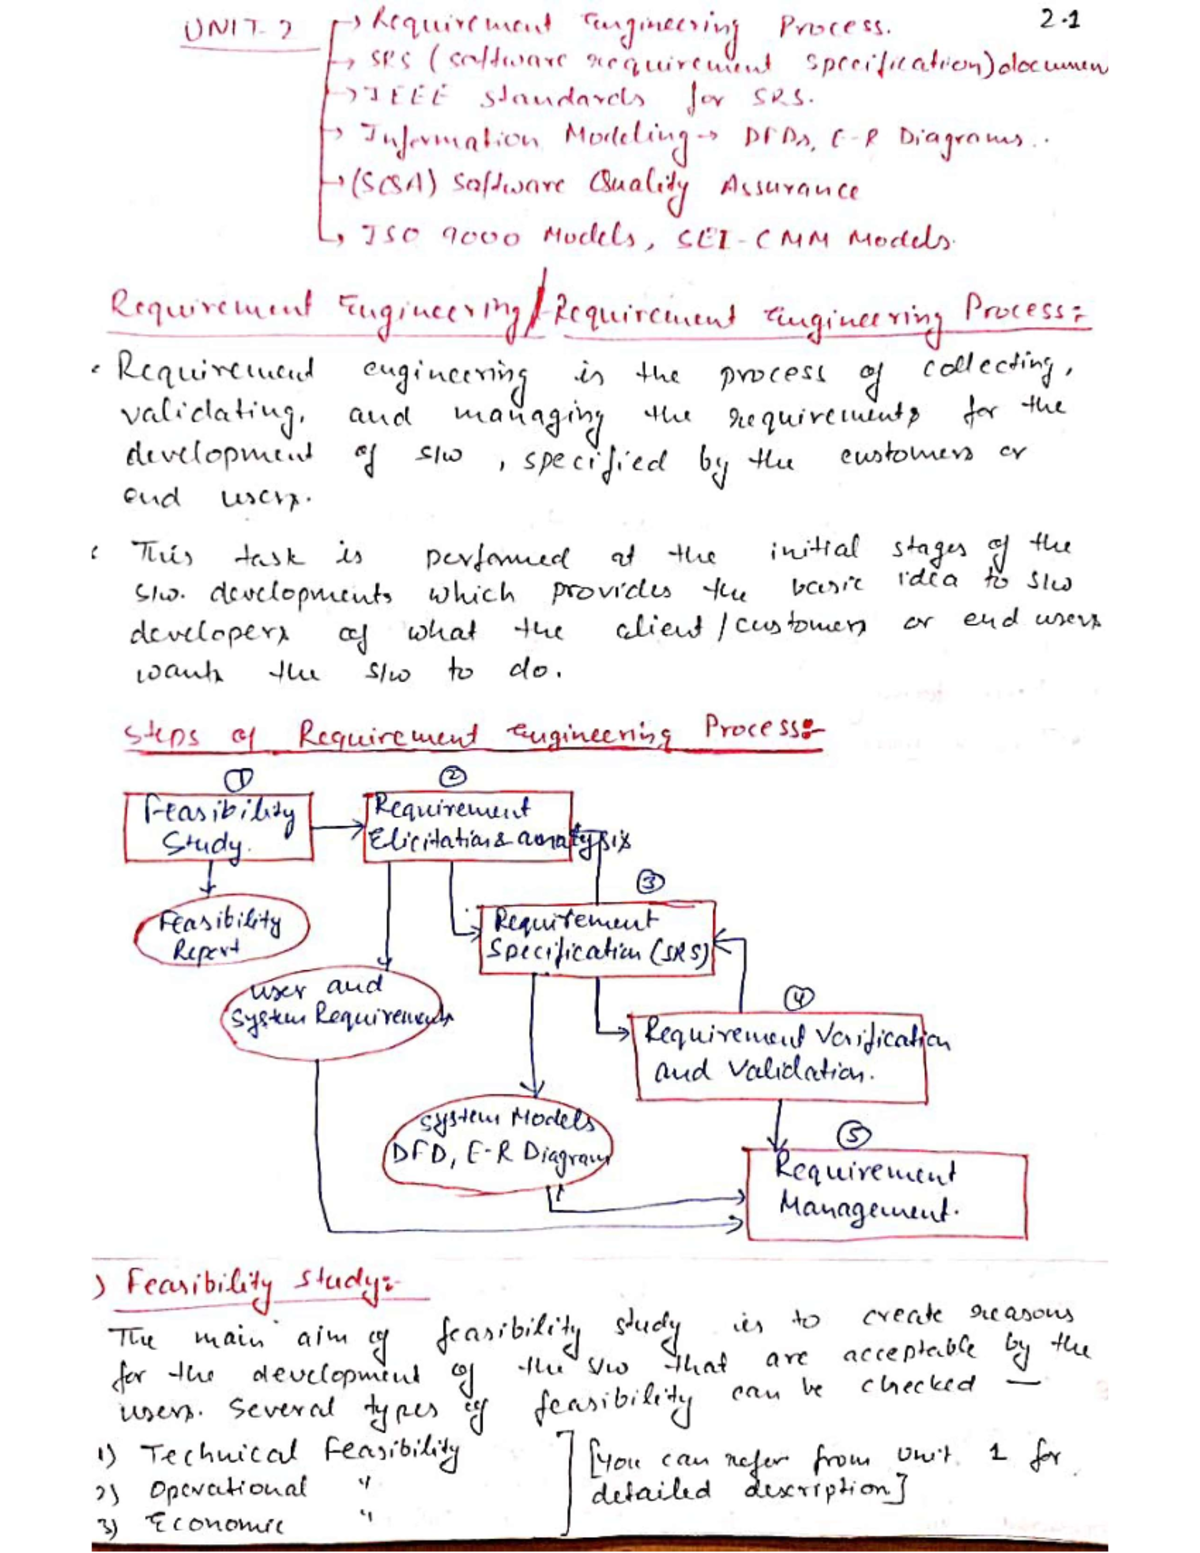 UNIT-2
2.1
→ Requirement Engineering Process.
→ SRS (software requirement specification) documen
→ IEEE standards for SRS.
→ Information Modeling → DFDs, E-R Diagrams..
→ (SQA) Software Quality Assurance
→ ISO 9000 Models, SEI-CMM Models.
Requirement Engineering / Requirement Engineering Process:-
Requirement engineering is the process of collecting,
validating, and managing the requirements for the
development of s/w, specified by the customers or
end users.
This task is performed at the initial stages of the
s/w. developments which provides the basic idea to s/w
developers of what the client/customers or end users
wants the s/w to do.
Steps of Requirement Engineering Process:-
① ②
Feasibility
Study.
Requirement
Elicitation & analysis
③
Feasibility
Report
Requirement
Specification (SRS)
user and
System Requirements
④
Requirement Verification
and Validation.
System Models
DFD, E-R Diagram
⑤
Requirement
Management.
) Feasibility study:-
The main aim of feasibility study is to create reasons
for the development of the s/w that are acceptable by the
users. Several types of feasibility can be checked —
1) Technical Feasibility
2) Operational "
3) Economic "
[You can refer from Unit 1 for
detailed description]